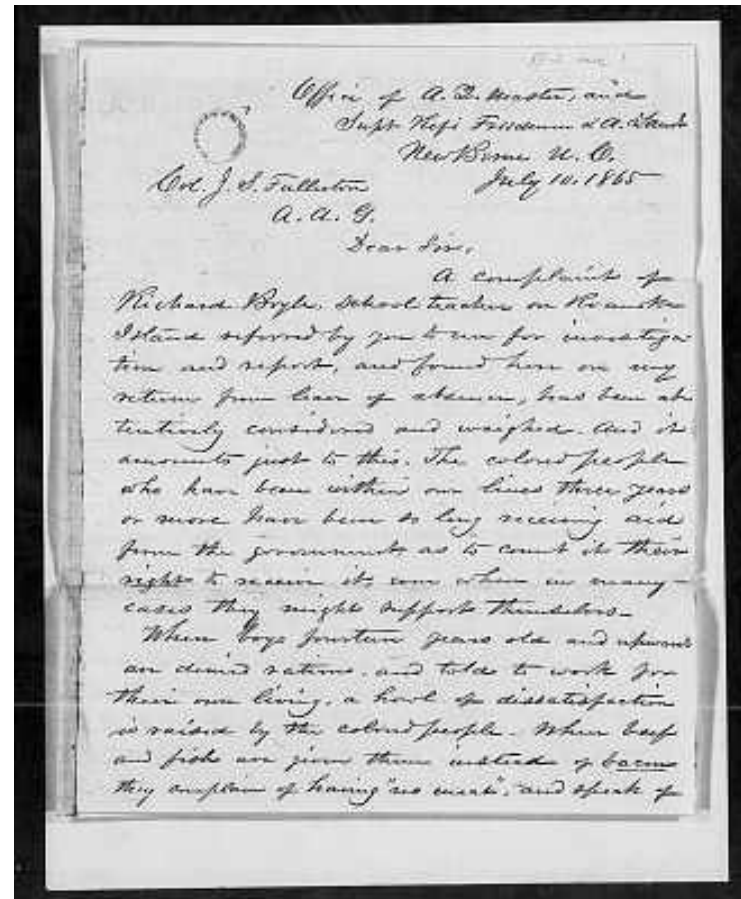 Office of A. Q. Master, and
Supt Negro Freedmen & A. Lands
New Berne N. C.
July 10. 1865
Col. J. S. Fullerton
A. A. G.
Dear Sir,
A complaint of
Richard Boyle, School teacher on Roanoke
Island referred by you to me for investiga
tion and report, and found here on my
return from leave of absence, has been at
tentively considered and weighed. And it
amounts just to this. The colored people
who have been within our lines three years
or more have been so long receiving aid
from the government as to count it their
right to receive it, even when in many
cases they might support themselves.
When boys fourteen years old and upward
are denied rations, and told to work for
their own living, a howl of dissatisfaction
is raised by the colored people. When beef
and fish are given them instead of bacon
they complain of having "no meat", and speak of